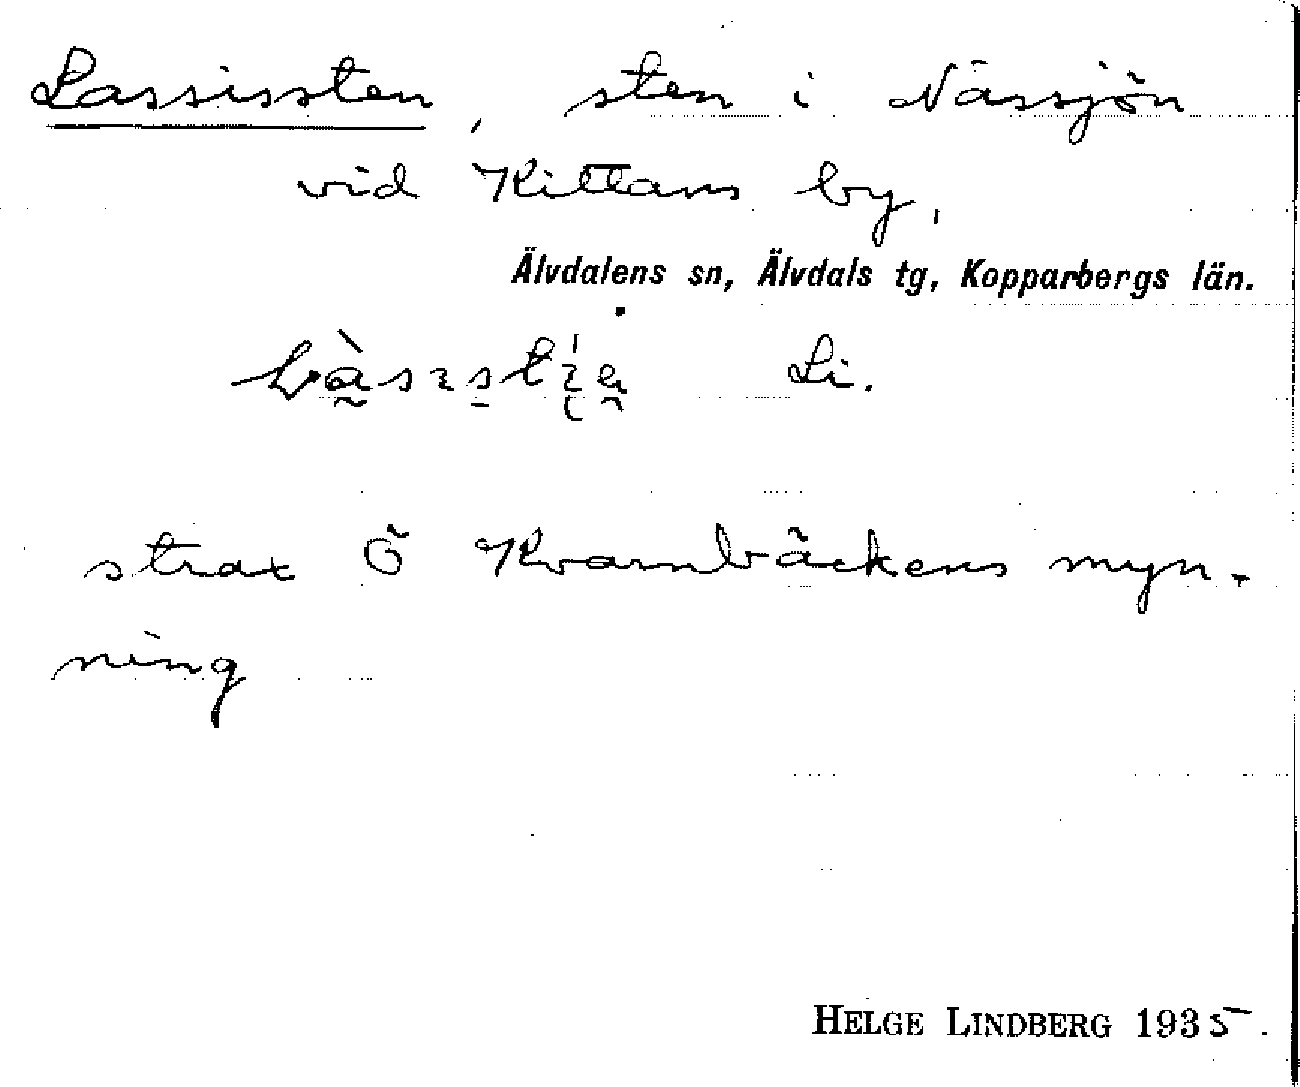 Lassissten, sten i Nässjön
vid Kittans by,
Älvdalens sn, Älvdals tg, Kopparbergs län.
Li.
strax Ö Kvarnbäckens myn-
ning
HELGE LINDBERG 1935.